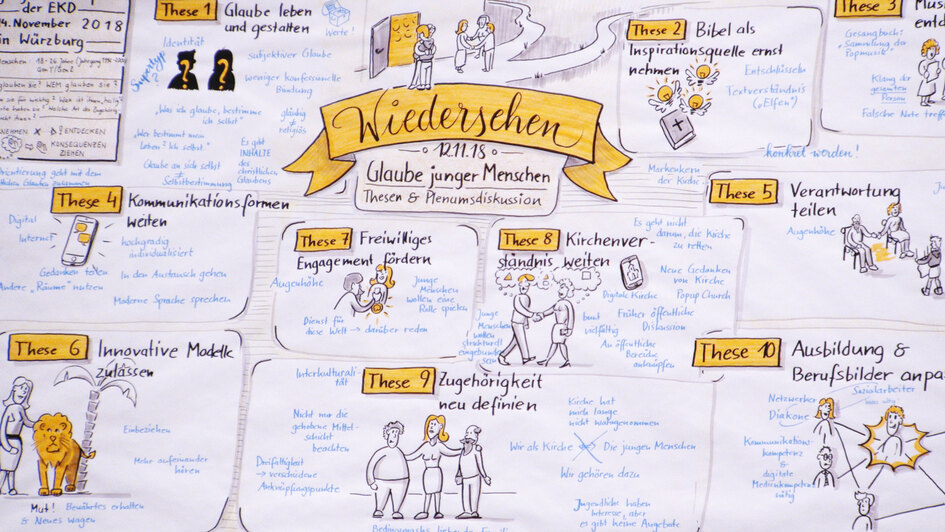 der EKD
4. November 2018
in Würzburg
ENTDECKEN
KONSEQUENZEN
ZIEHEN
These 1
Glaube leben
und gestalten
Werte!
Identität
Supertyp?
subjektiver Glaube
weniger konfessionelle
Bindung
"Was ich glaube, bestimme
ich selbst"
gläubig
≠
religiös
"Wer bestimmt mein
Leben? Ich selbst."
Es gibt
INHALTE
des
christlichen
Glaubens
Glaube an sich selbst
≠
Selbstbestimmung
Wiedersehen
12.11.18
Glaube junger Menschen
Thesen & Plenumsdiskussion
These 2
Bibel als
Inspirationsquelle ernst
nehmen
Entschlüsseln
Textverständnis
("Elfen")
konkret werden!
Markenkern
der Kirche
These 3
Gesangbuch:
"Sammlung der
Popmusik"
Klang der
gesamten
Person
Falsche Note
These 4
Kommunikationsformen
weiten
Digital
Internet
hochgradig
individualisiert
Gedanken teilen
Andere "Räume" nutzen
In den Austausch gehen
Moderne Sprache sprechen
These 5
Verantwortung
teilen
Augenhöhe
These 6
Innovative Modelle
zulassen
Einbeziehen
Mehr aufeinander
hören
Mut! Bewährtes erhalten
& Neues wagen
These 7
Freiwilliges
Engagement fördern
Augenhöhe
Junge
Menschen
wollen eine
Rolle spielen
Dienst für
diese Welt → darüber reden
These 8
Kirchenver-
ständnis weiten
Es geht nicht
darum, die Kirche
zu retten
Digitale Kirche
Neue Gedanken
von Kirche
Popup Church
Junge
Menschen
wollen
strukturell
eingebunden
sein
bunt
vielfältig
Früher öffentliche
Diskussion
An öffentliche
Bereiche
anknüpfen
These 9
Zugehörigkeit
neu definien
Interkulturali-
tät
Nicht nur die
gehobene Mittel-
schicht
beachten
Dreifaltigkeit
→ verschiedene
Anknüpfungspunkte
Kirche hat
noch lange
nicht wahrgenommen
Wir als Kirche
Die jungen Menschen
Wir gehören dazu
Jugendliche haben
Interesse, aber
es gibt keine Angebote
These 10
Ausbildung &
Berufsbilder anpa
Netzwerker
Diakone
Sozialarbeiter
Kommunikations-
kompetenz
&
digitale
Medienkompetenz
nötig